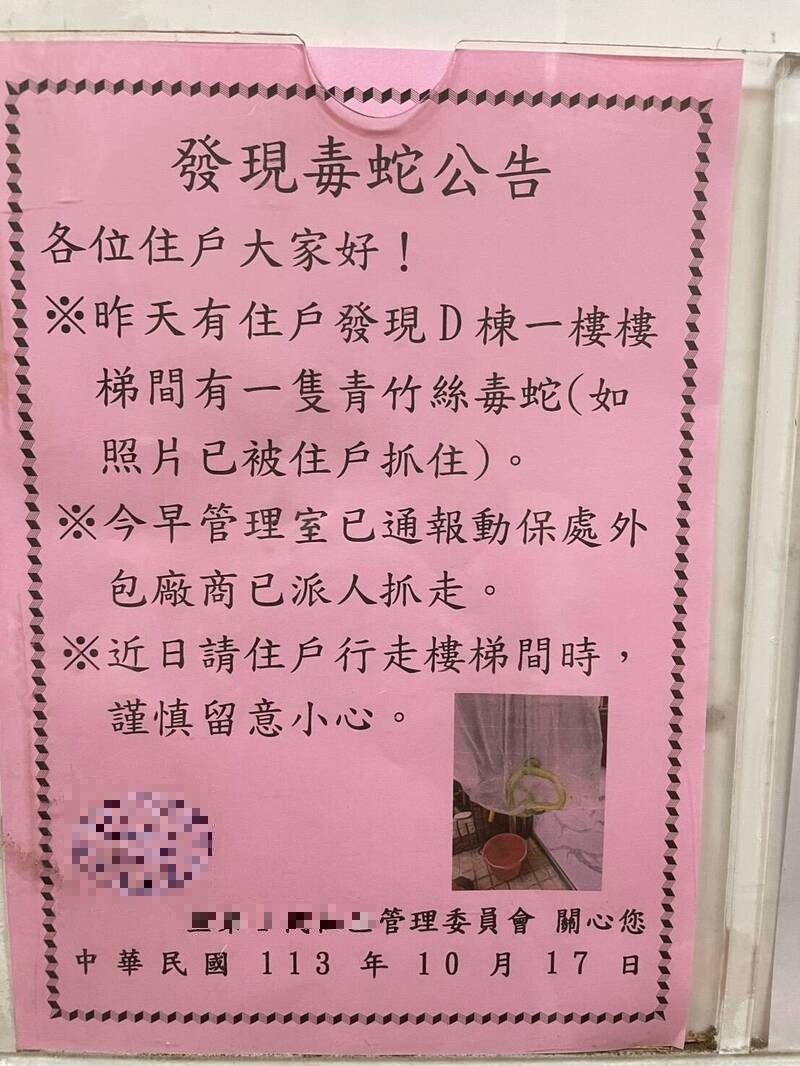 發現毒蛇公告
各位住戶大家好！
※昨天有住戶發現D棟一樓樓
梯間有一隻青竹絲毒蛇(如
照片已被住戶抓住)。
※今早管理室已通報動保處外
包廠商已派人抓走。
※近日請住戶行走樓梯間時，
謹慎留意小心。
管理委員會 關心您
中華民國 113 年 10 月 17 日